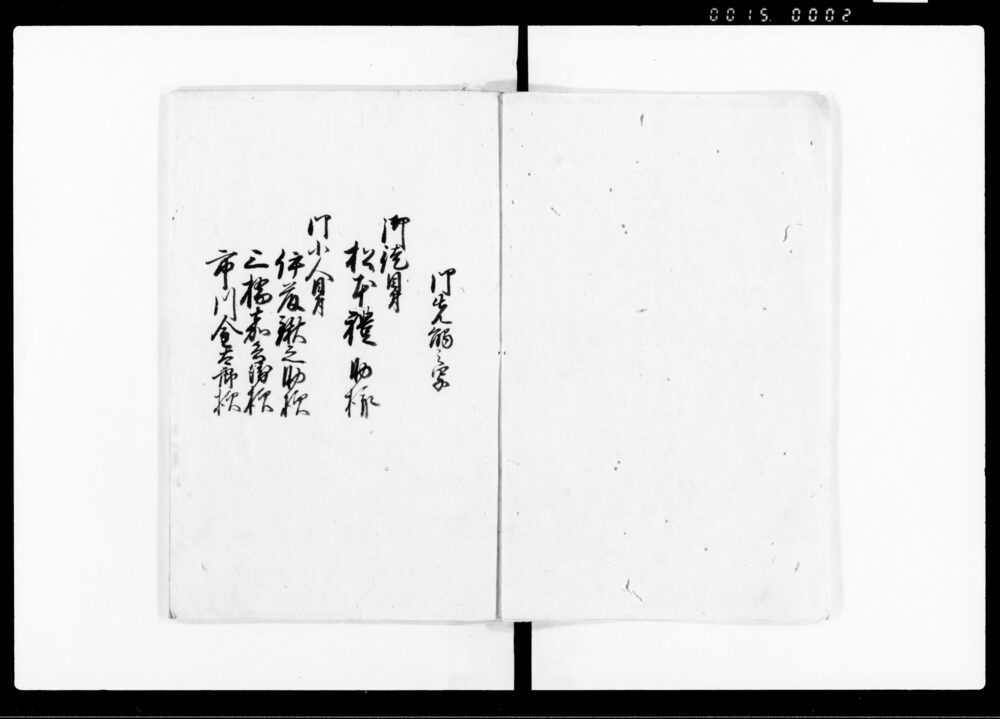 0015. 0002
御先觸之写
御徒目付
松本禮助様
御小人目付
伊藤鍬之助様
三橋嘉兵衛様
市川金太郎様